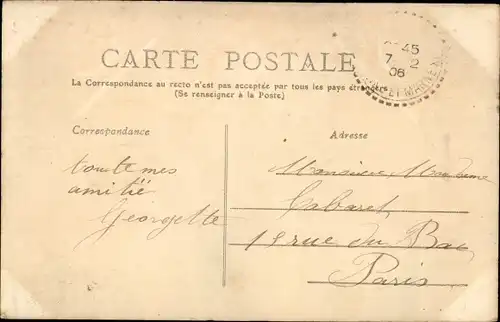 CARTE POSTALE
La Correspondance au recto n'est pas acceptée par tous les pays étrangers
(Se renseigner à la Poste)
45
7 2
06
Correspondance
Adresse
toute mes
amitié
Georgette
Monsieur Madame
Cabaret
19 rue du Bac
Paris